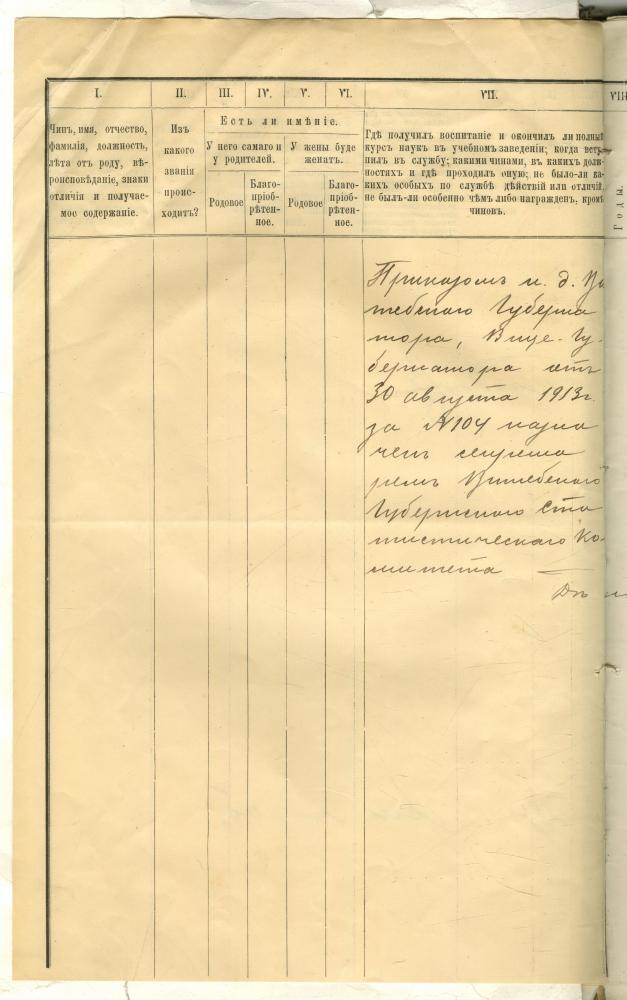 I. II. III. IV. V. VI. VII. VIII
Чинъ, имя, отчество,
фамилія, должность,
лѣта отъ роду, вѣ-
роисповѣданіе, знаки
отличія и получае-
мое содержаніе.
Изъ
какого
званія
проис-
ходитъ?
Есть ли имѣніе.
У него самаго и
у родителей.
У жены буде
женатъ.
Родовое
Благо-
пріоб-
рѣтен-
ное.
Родовое
Благо-
пріоб-
рѣтен-
ное.
Гдѣ получилъ воспитаніе и окончилъ ли полный
курсъ наукъ въ учебномъ заведеніи; когда всту-
пилъ въ службу; какими чинами, въ какихъ долж-
ностяхъ и гдѣ проходилъ оную; не было-ли ка-
кихъ особыхъ по службѣ дѣйствій или отличій,
не былъ-ли особенно чѣмъ либо награжденъ, кромѣ
чиновъ.
Годы.
Приказомъ и. д. Ви
тебскаго Губерна
тора, Вице-Гу-
бернатора отъ
30 августа 1913 г.
за №104 назна
ченъ секрета
ремъ Витебскаго
Губернскаго Ста
тистическаго Ко-
митета —